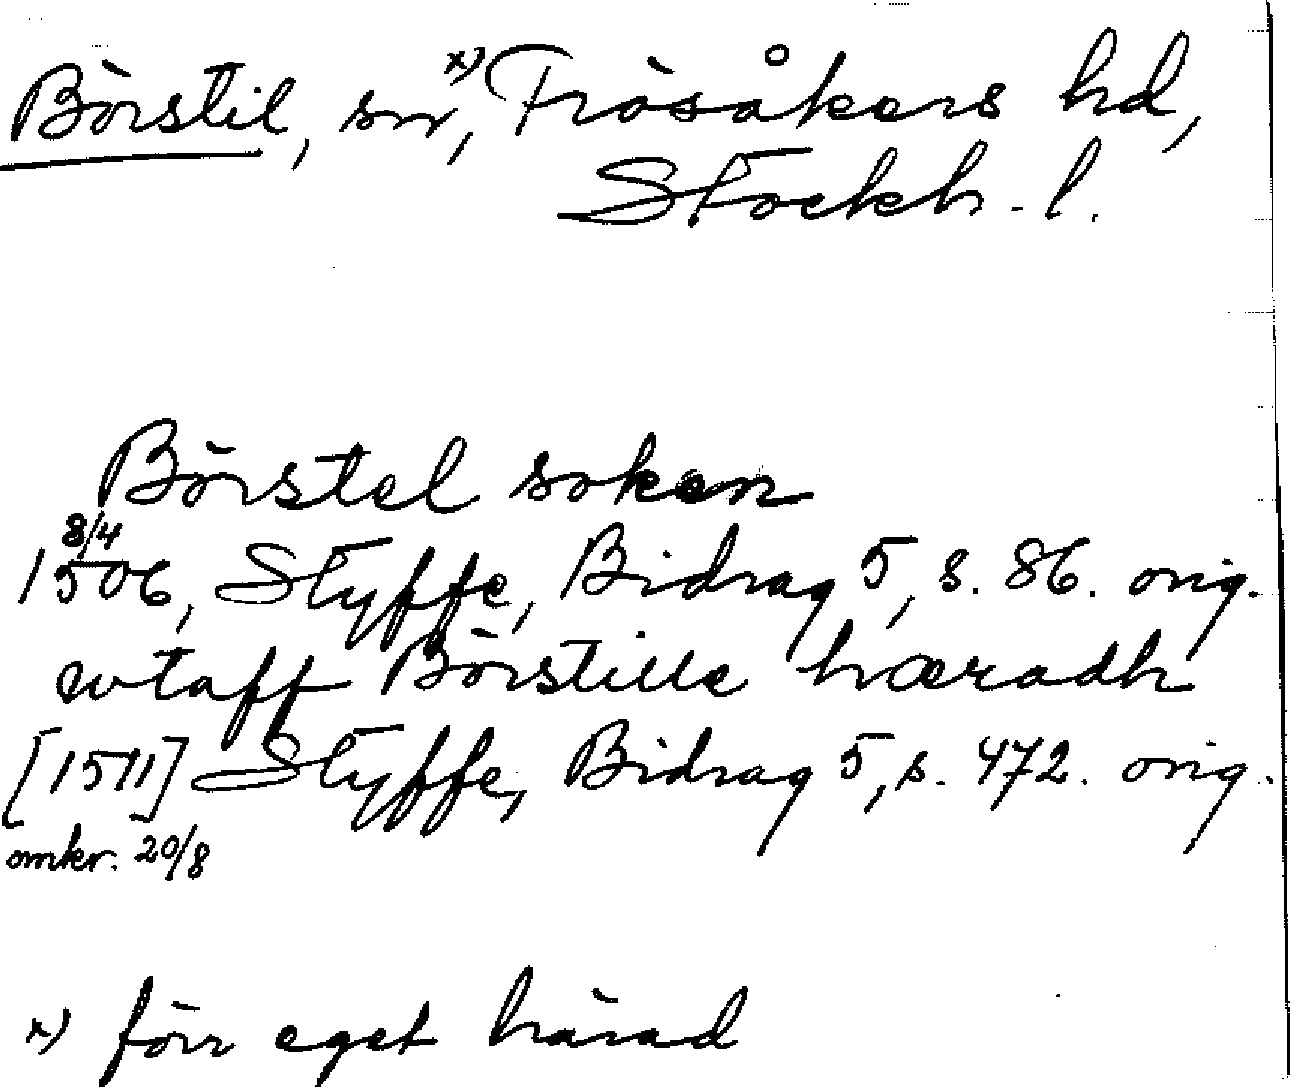 Börstil, sn, x) Frösåkers hd,
Stockh. l.
Börstel soken
8/4
1506, Styffe, Bidrag 5, s. 86. orig.
wtaff Börstille hæradh
[1511] Styffe, Bidrag 5, s. 472. orig.
omkr. 20/8
x) förr eget härad